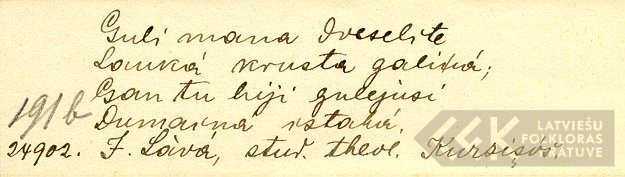 Guli mana dveselite
Laukā krusta galiņā;
Gan tu biji gulejusi
191b Dumainā istabā.
24902. F. Lāvā, stud. theol. Kursisos.
LATVIEŠU
FOLKLORAS
KRĀTUVE